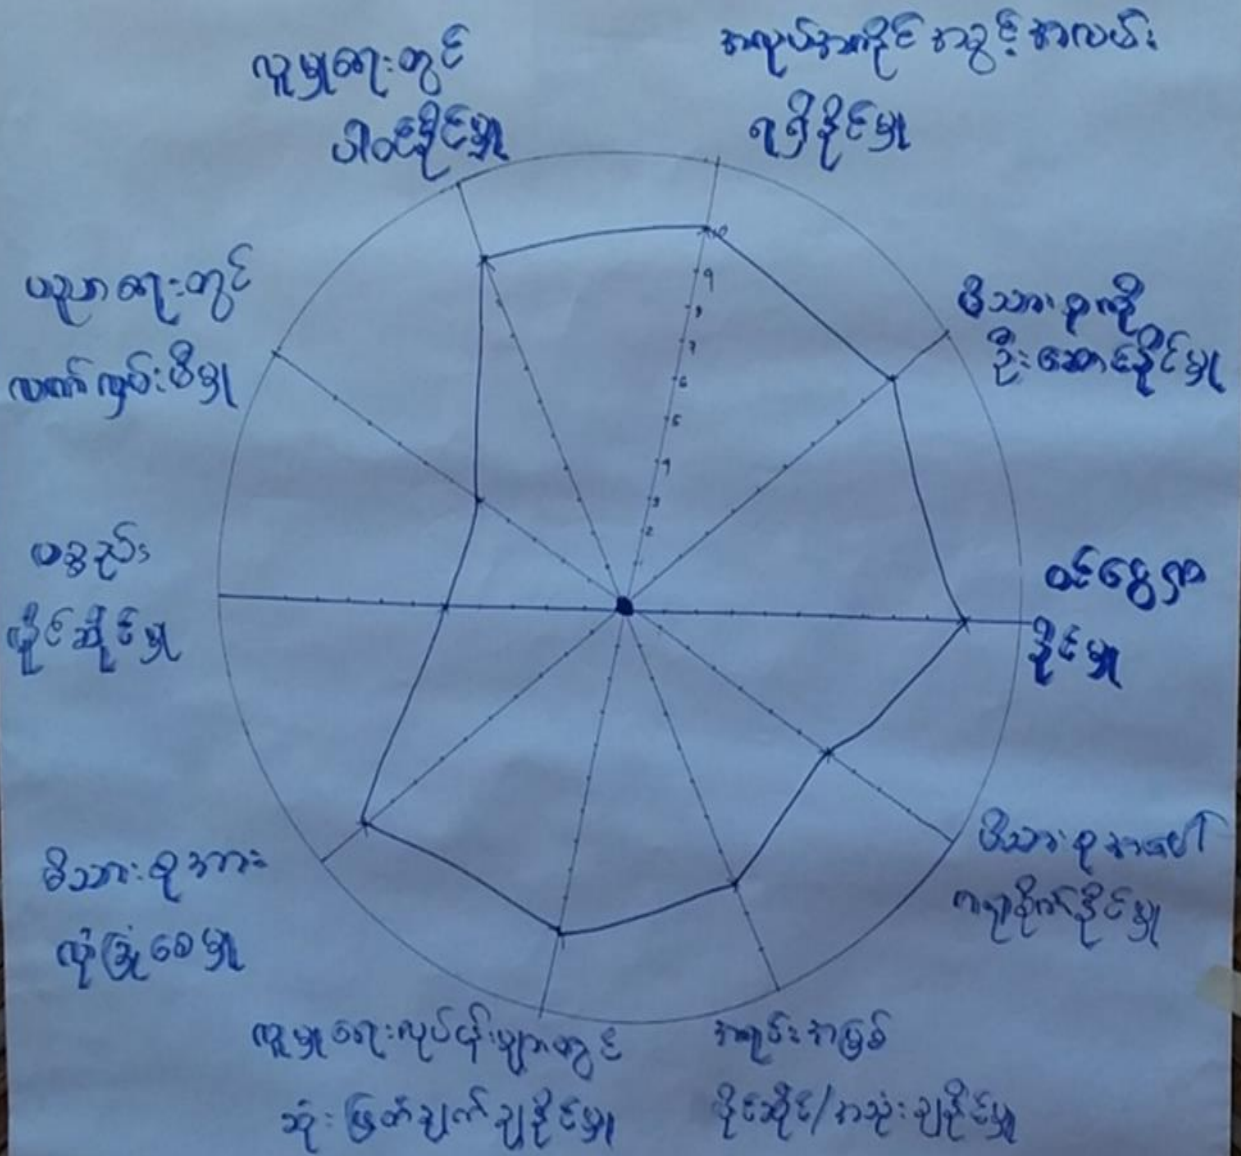 လူမှုရေးတွင်
ပါဝင်နိုင်မှု
အလုပ်အကိုင် အခွင့်အလမ်း
ရရှိနိုင်မှု
မိသားစုကို
ဦးဆောင်နိုင်မှု
ဝင်ငွေရှာ
နိုင်မှု
မိသားစုအပေါ်
ဂရုစိုက်နိုင်မှု
အရင်းအမြစ်
ပိုင်ဆိုင်/အသုံးချနိုင်မှု
လူမှုရေးလုပ်ငန်းများတွင်
ဆုံးဖြတ်ချက်ချနိုင်မှု
မိသားစုအား
လုံခြုံစေမှု
ပစ္စည်း
ပိုင်ဆိုင်မှု
ပညာရေးတွင်
လက်လှမ်းမီမှု
10
9
8
7
6
5
4
3
2
1